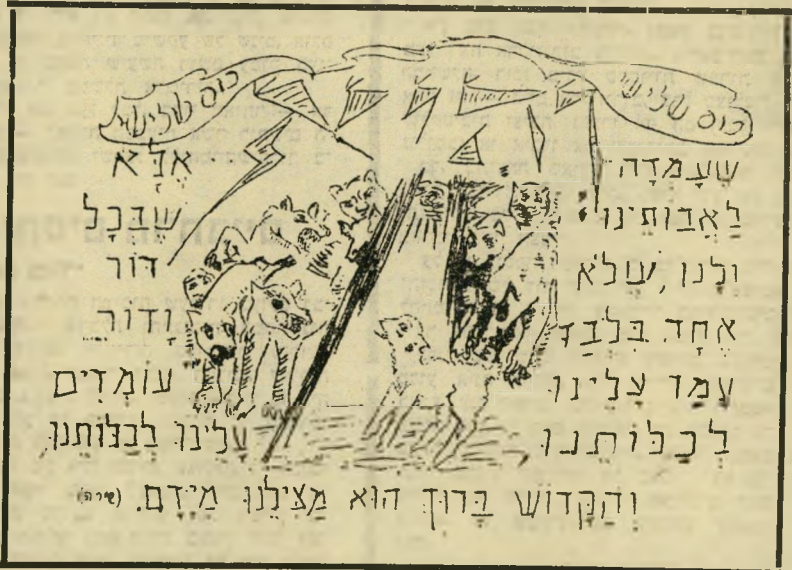 כוס שלישי
כוס שלישי
שֶׁעָמְדָה
לַאֲבוֹתֵינוּ
וְלָנוּ, שֶׁלֹּא
אֶחָד בִּלְבַד
עָמַד עָלֵינוּ
לְכַלּוֹתֵנוּ
אֶלָּא
שֶׁבְּכָל
דּוֹר
וָדוֹר
עוֹמְדִים
עָלֵינוּ לְכַלּוֹתֵנוּ
וְהַקָּדוֹשׁ בָּרוּךְ הוּא מַצִּילֵנוּ מִיָּדָם. (שירה)